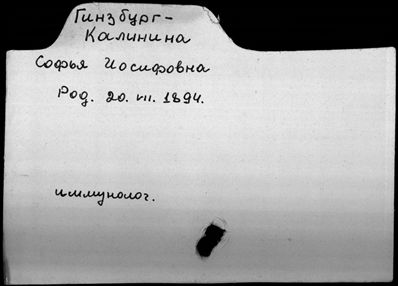 Гинзбург-
Калинина
Софья Иосифовна
Род. 20. III. 1894.
иммунолог.